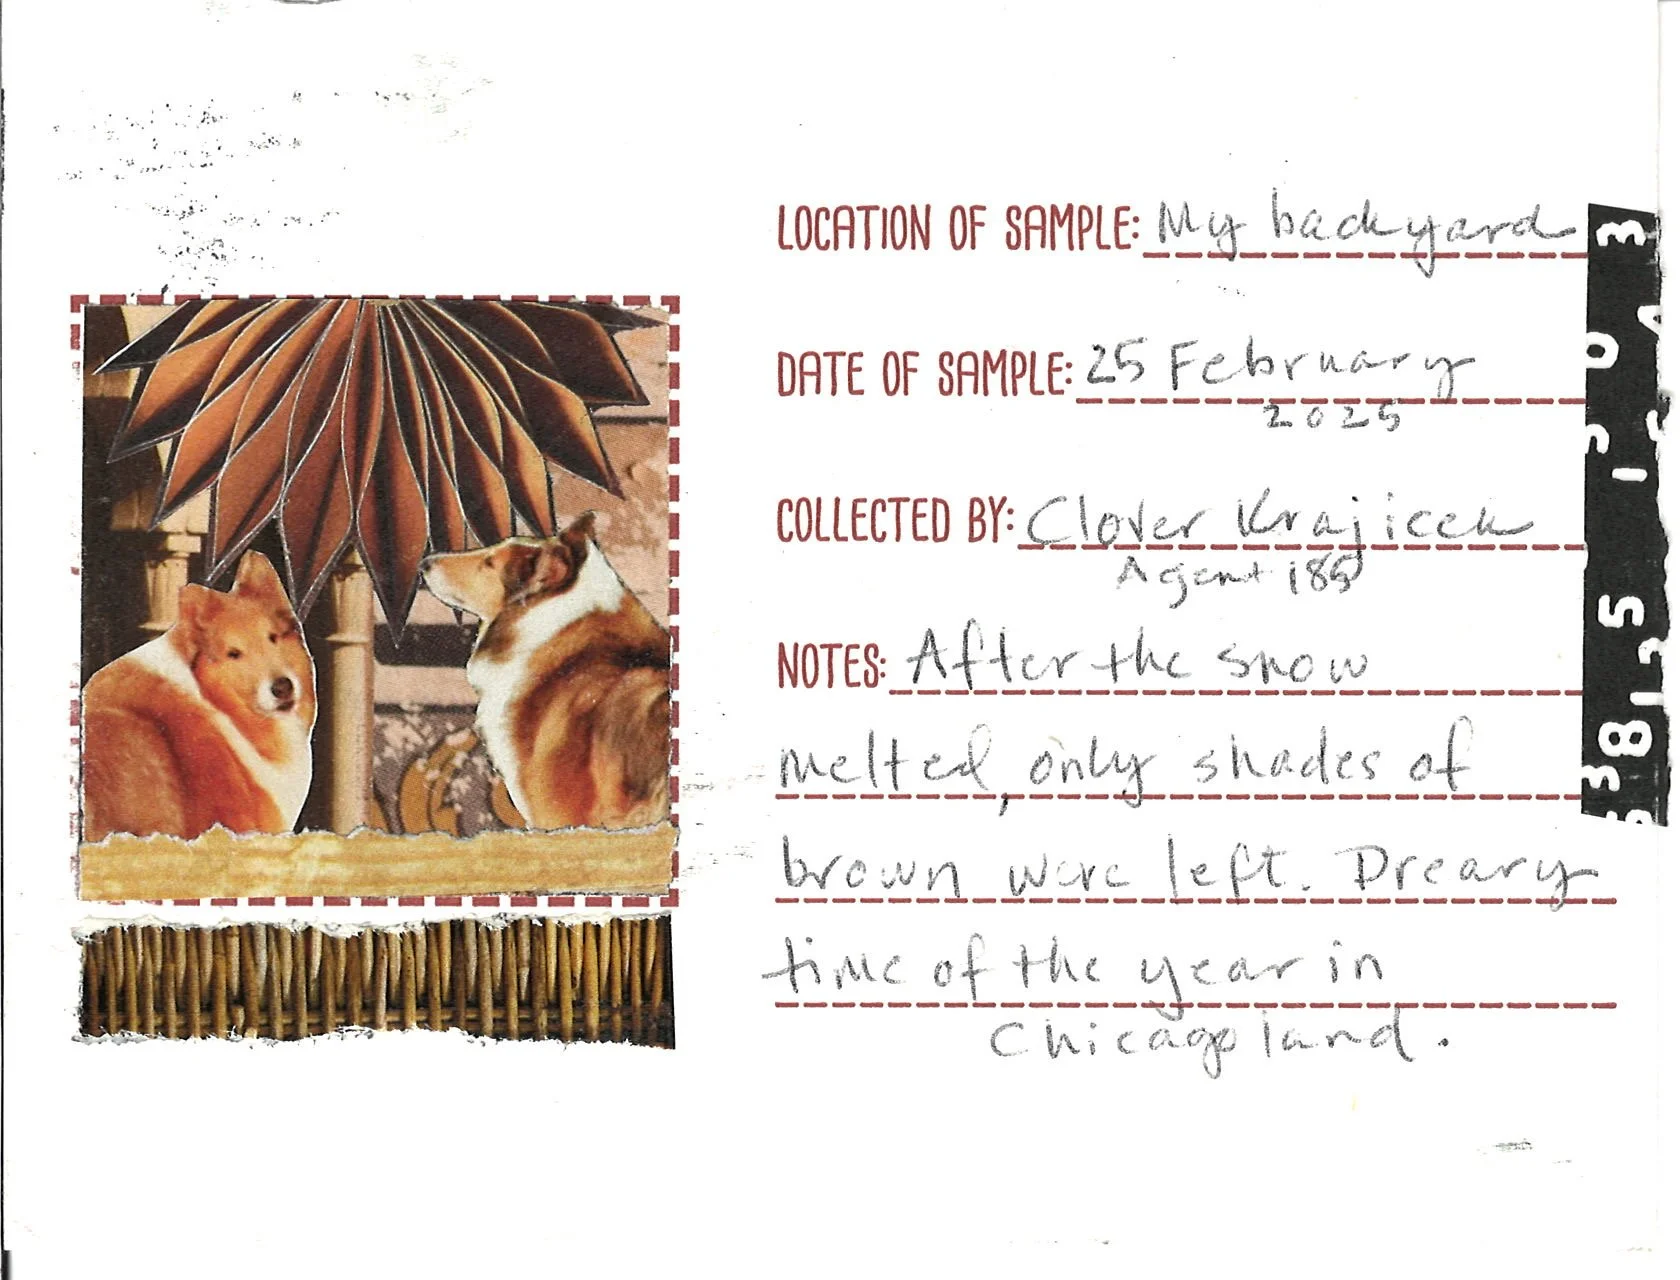 LOCATION OF SAMPLE: My backyard
DATE OF SAMPLE: 25 February
2025
COLLECTED BY: Clover Krajicek
Agent 185
NOTES: After the snow
melted, only shades of
brown were left. Dreary
time of the year in
Chicagoland.